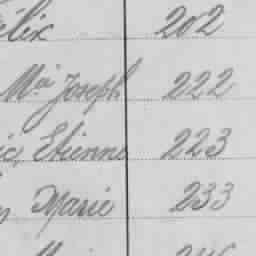 élix 202
Mⁱᵃ Joseph 222
Etienne 223
Marie 233